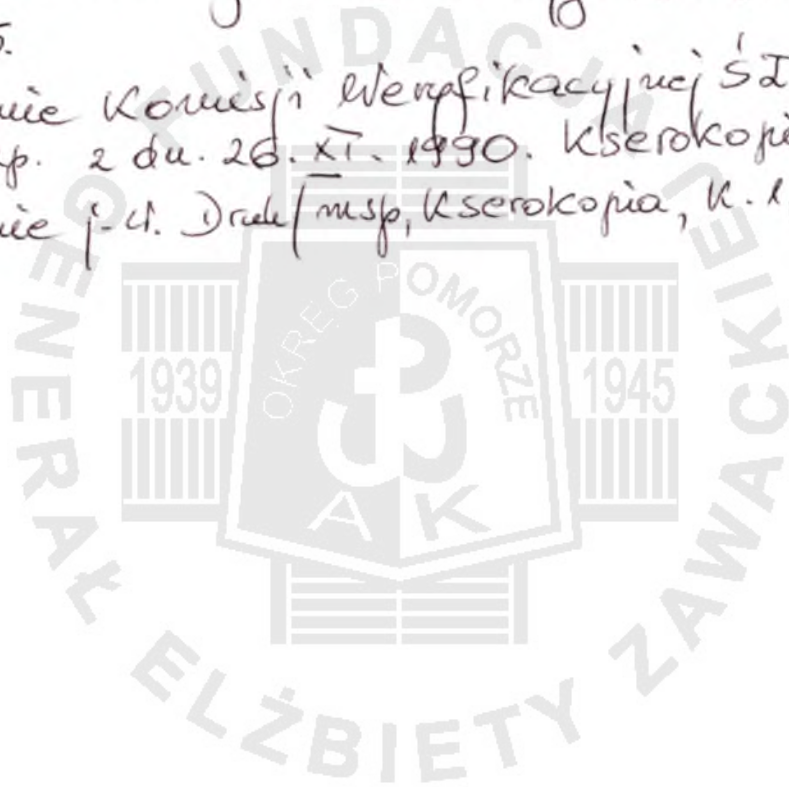 5.
nie Komisji Weryfikacyjnej ŚZ
p. z dn. 26. XI. 1990. Kserokopi
nie j.w. Druk/msp, Kserokopia, K. 1
FUNDACJA GENERAŁ ELŻBIETY ZAWACKIEJ
OKRĘG POMORZE
1939 1945
AK